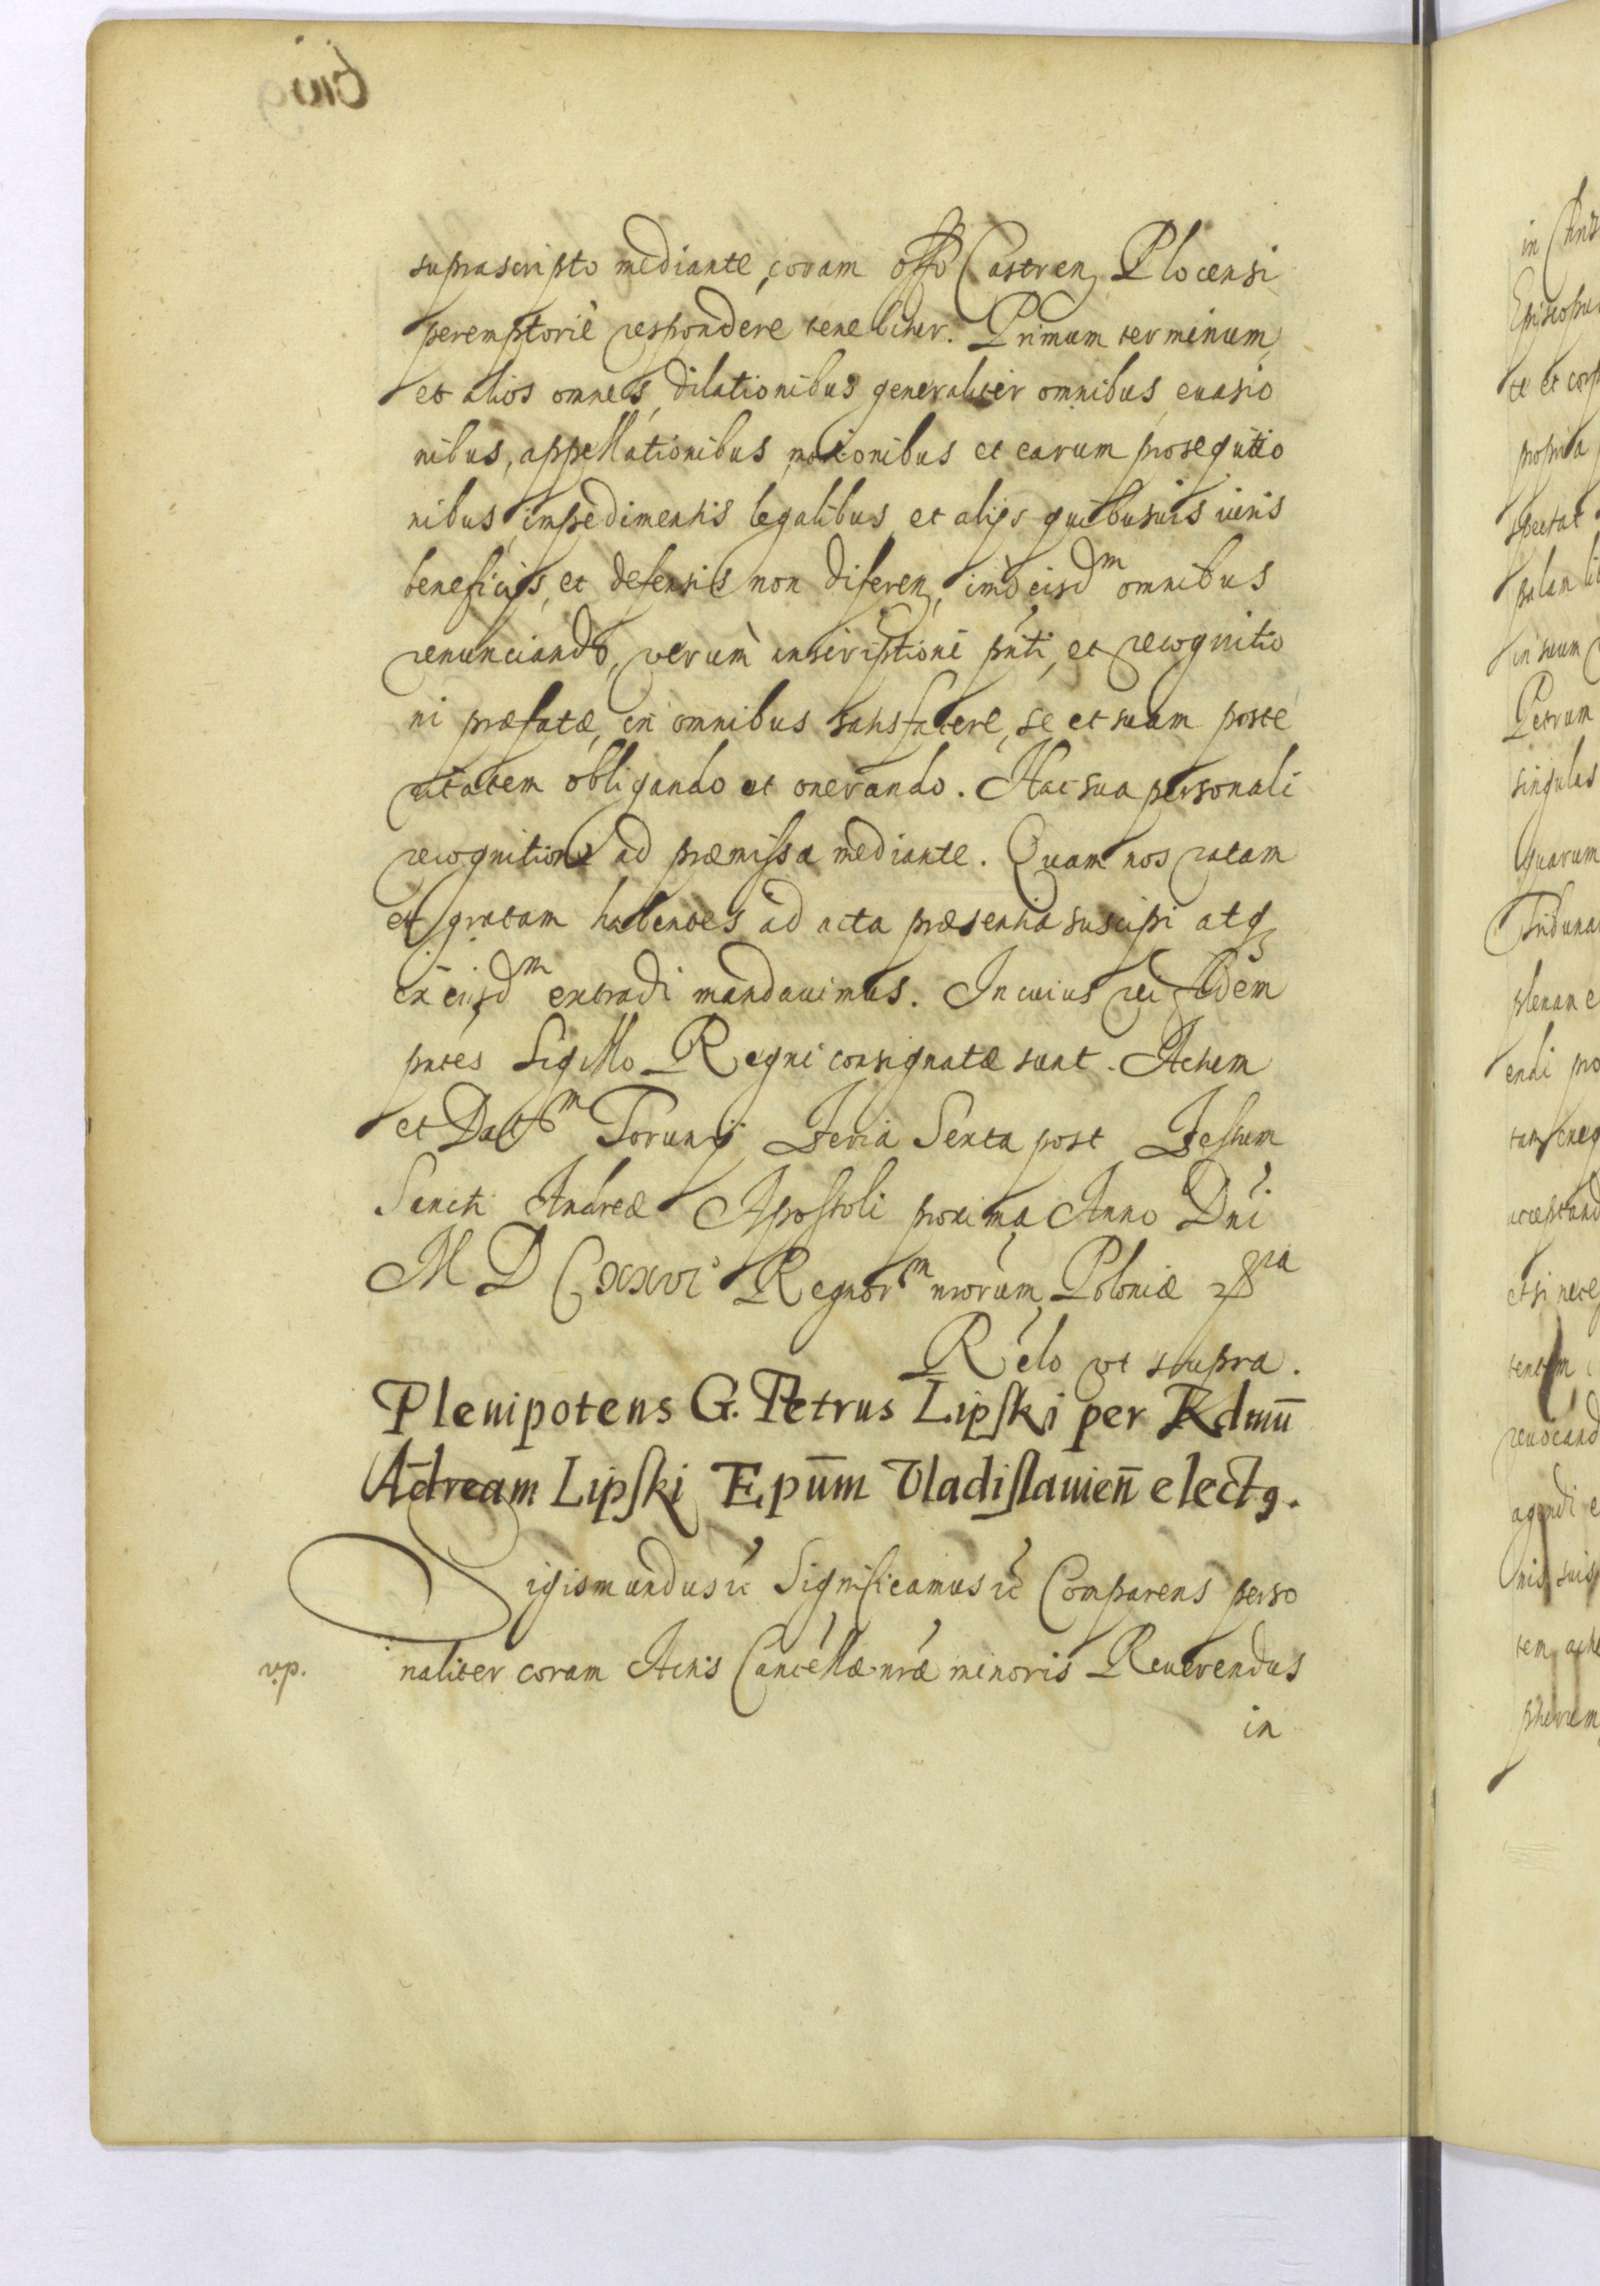 supra scripto mediante, coram offo Castren Plocensi
peremptoriè respondere tenebitur. Primum terminum
et alios omnes, dilationibus generaliter omnibus evasio
nibus, appellationibus motionibus et earum prosequtio
nibus impedimentis legalibus et alijs quibusuis iuris
beneficijs, et defensis non diferen, imò eisdm omnibus
renunciando, verum inscriptioni pnti, et recognitio
ni præfatæ, in omnibus satisfacere, se et suam poste
ritatem obligando et onerando. Hac sua personali
recognitione ad præmissa mediante. Quam nos ratam
et gratam habentes ad acta præsentia suscipi atq
ex eijsdm extradi mandauimus. In cuius rei fidem
pntes Sigillo Regni consignatæ sunt. Actum
et Datm Torunij Feria Sexta post Festum
Sancti Andreæ Apostoli proxima Anno Dni
M D CXXVI Regnorm nrorum Poloniæ
Relo vt supra.
Plenipotens G. Petrus Lipski per Rdmū
Adream Lipski Epūm Vladislauien̄ elect9.
Sigismundus rc Significamus rc Comparens perso
v.p. naliter coram Actis Cancellæ nræ minoris Reuerendus
in
in
Episcopu
te et corp
propria
spectat
palam
in suum
Petrum
singulas
quarum
Tribuna
plenam
endi
acceptand
et si nece
reuocand
agendi e
nis suis